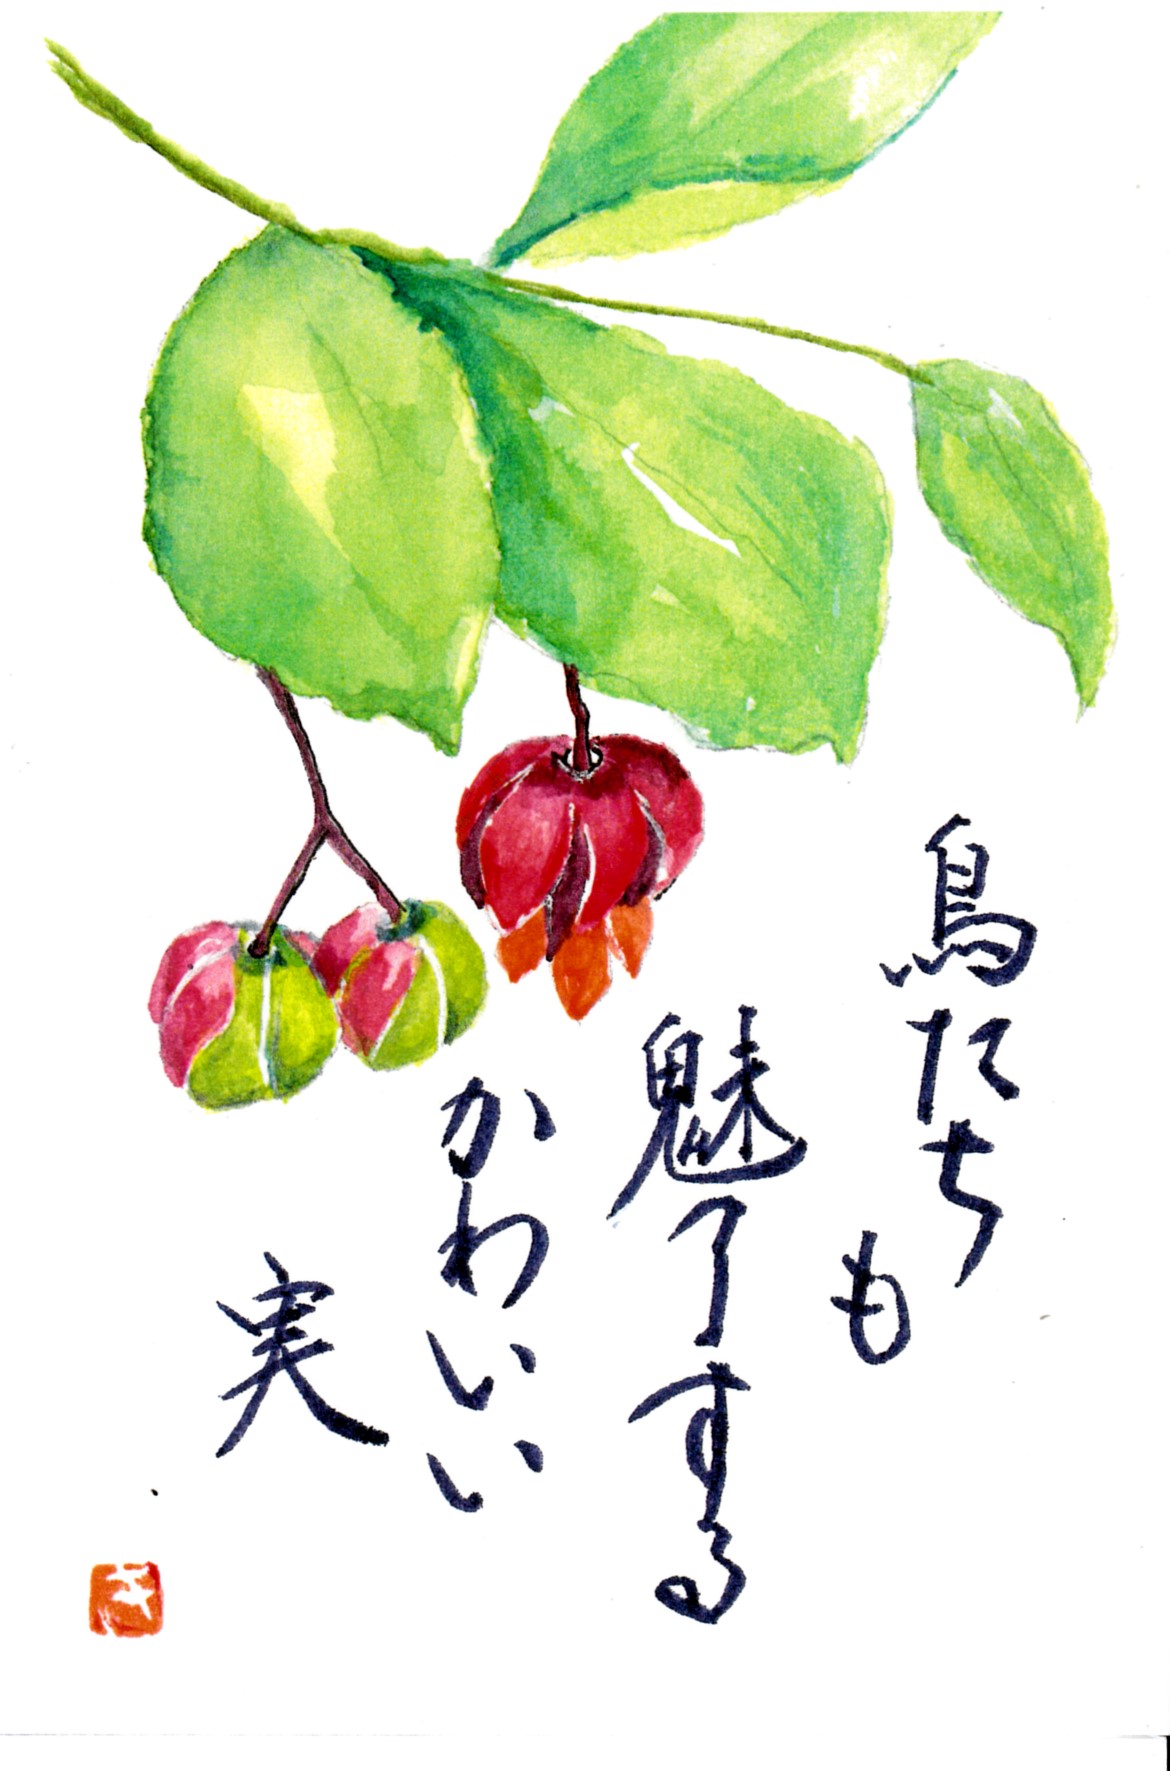 鳥たち
も
魅了する
かわいい
実